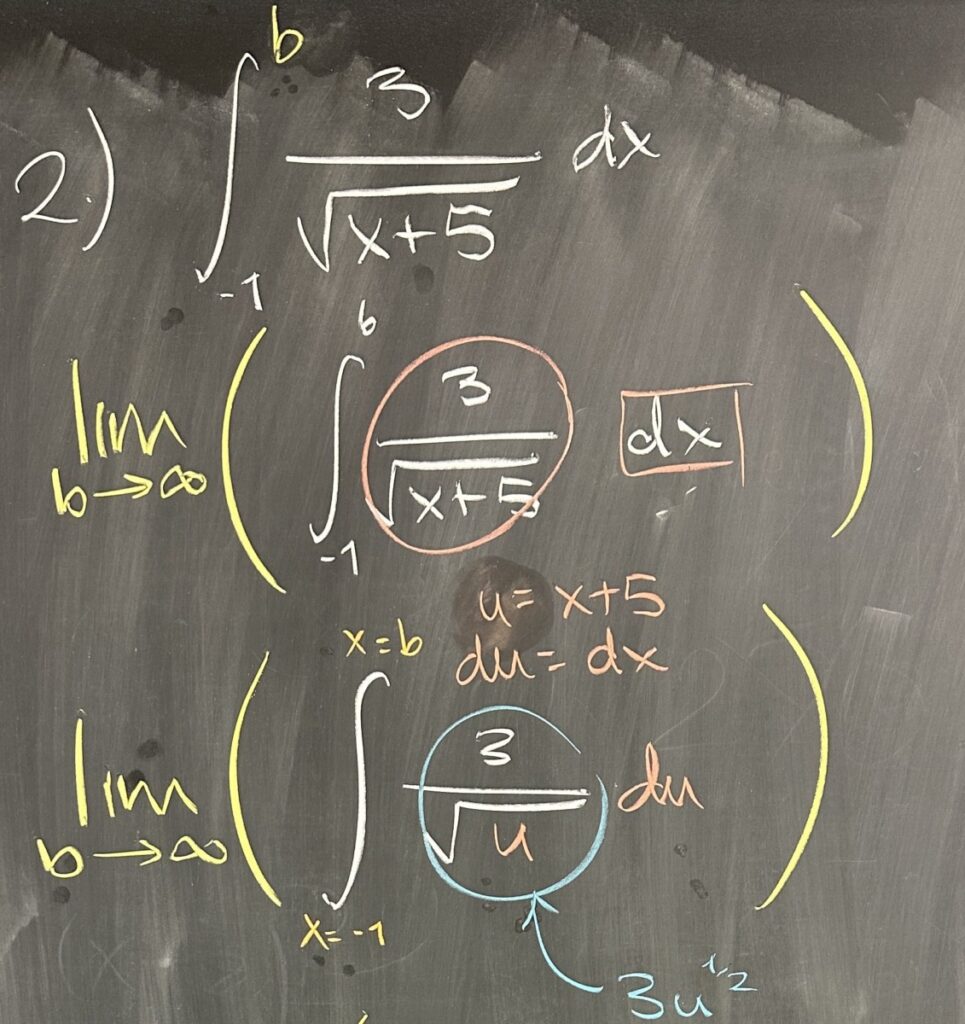 2.) ∫_{-1}^{b} 3/√(x+5) dx
lim_{b→∞} ( ∫_{-1}^{b} 3/√(x+5) dx )
u = x+5
du = dx
lim_{b→∞} ( ∫_{x=-1}^{x=b} 3/√u du )
3u^{1/2}